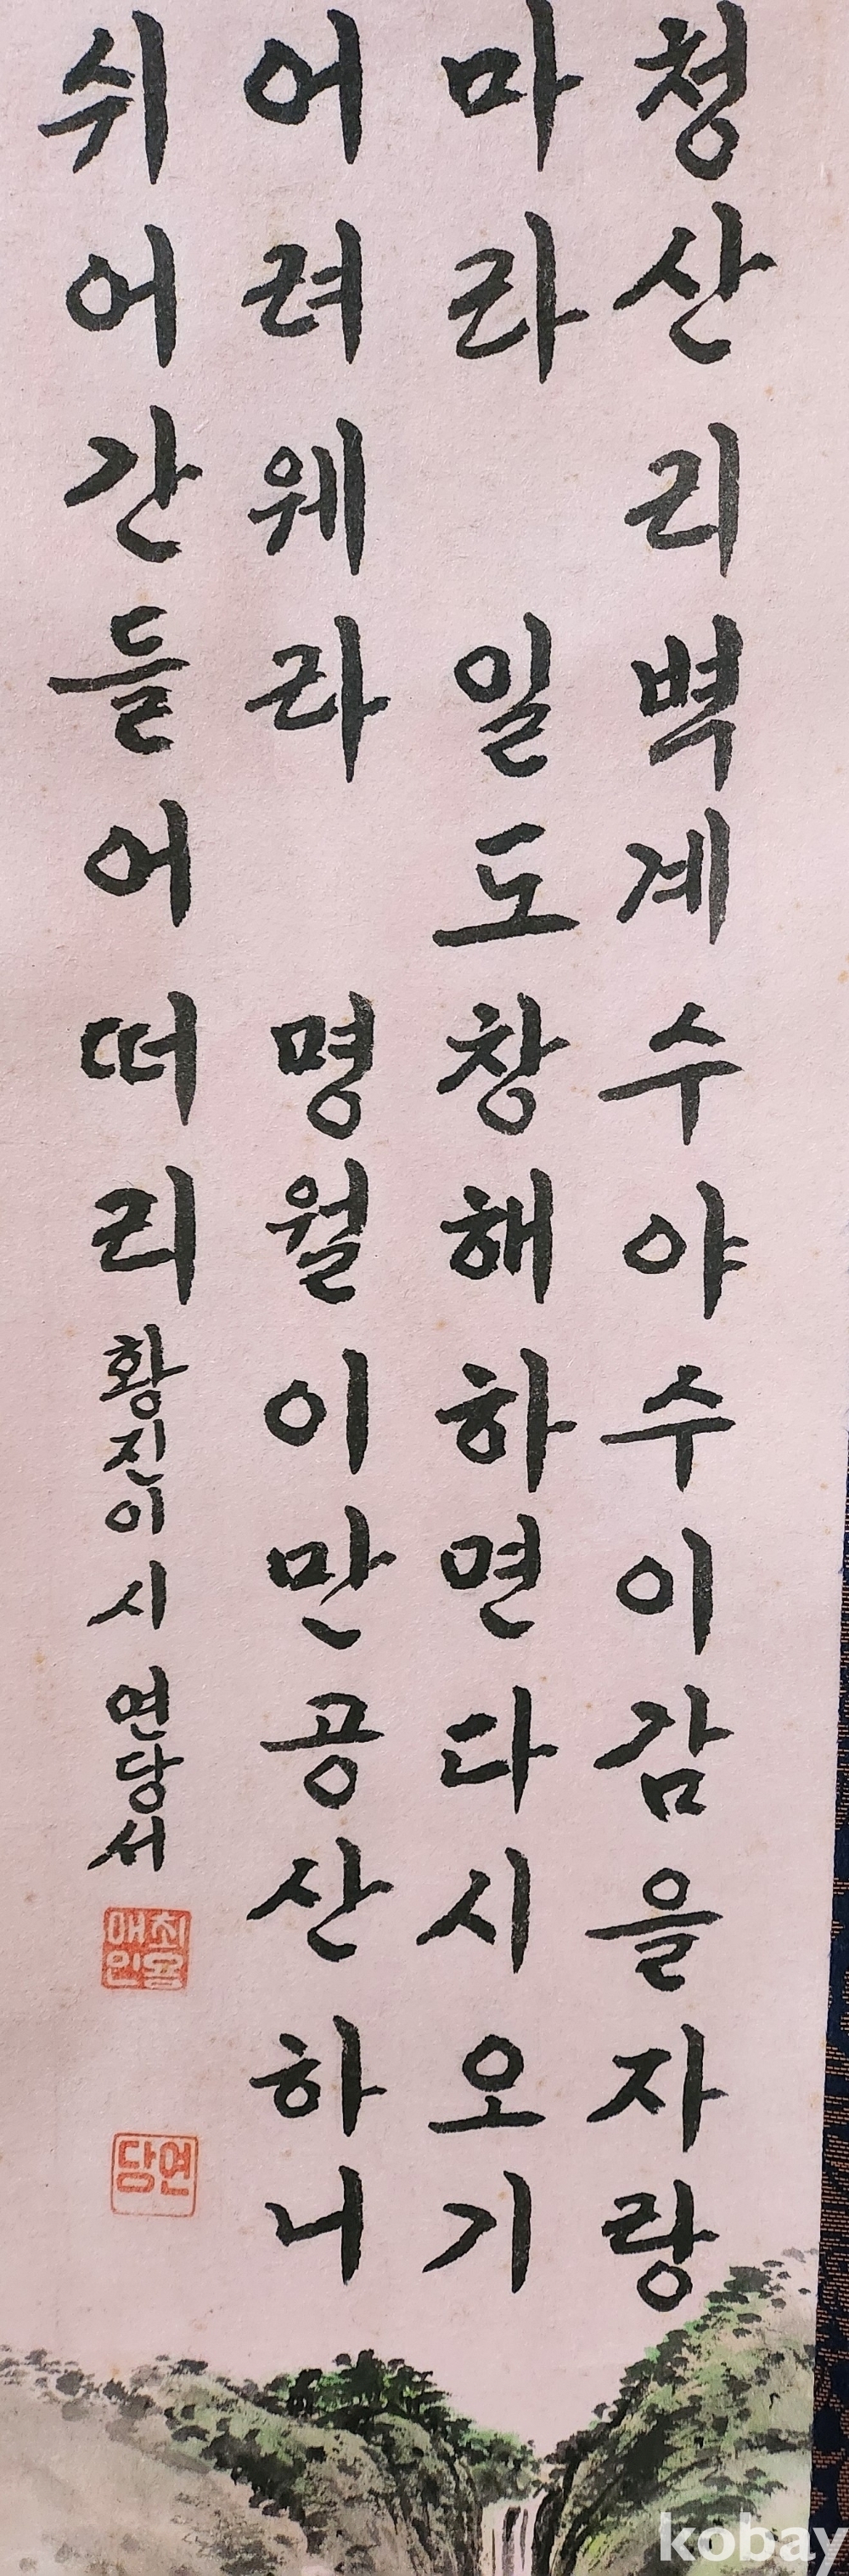 청산리벽계수야수이감을자랑
마라 일도창해하면다시오기
어려웨라 명월이만공산하니
쉬어간들어떠리
황진이 시 연당서
최용
애인
연당
kobay